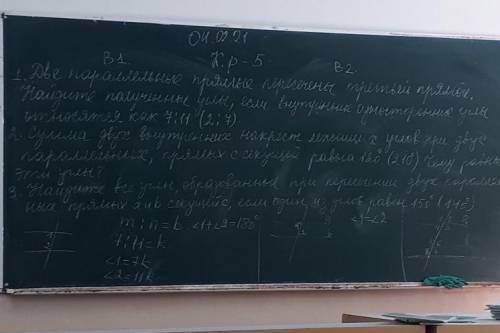 04.02.21
В1. К.р - 5 В-2.
1. Две параллельные прямые пересечены третьей прямой.
Найдите полученные углы, если внутренние односторонние углы
относятся как 7:11 (2:7)
2. Сумма двух внутренних накрест лежащих углов при двух
параллельных прямых с секущей равна 120 (210) Чему равны
эти углы?
3. Найдите все углы, образованные при пересечении двух параллель
ных прямых a и b секущей, если один из углов равен 15°
m:n=k <1+<2=180° <1=<2
7:11=k
<1=7k
<2=11k